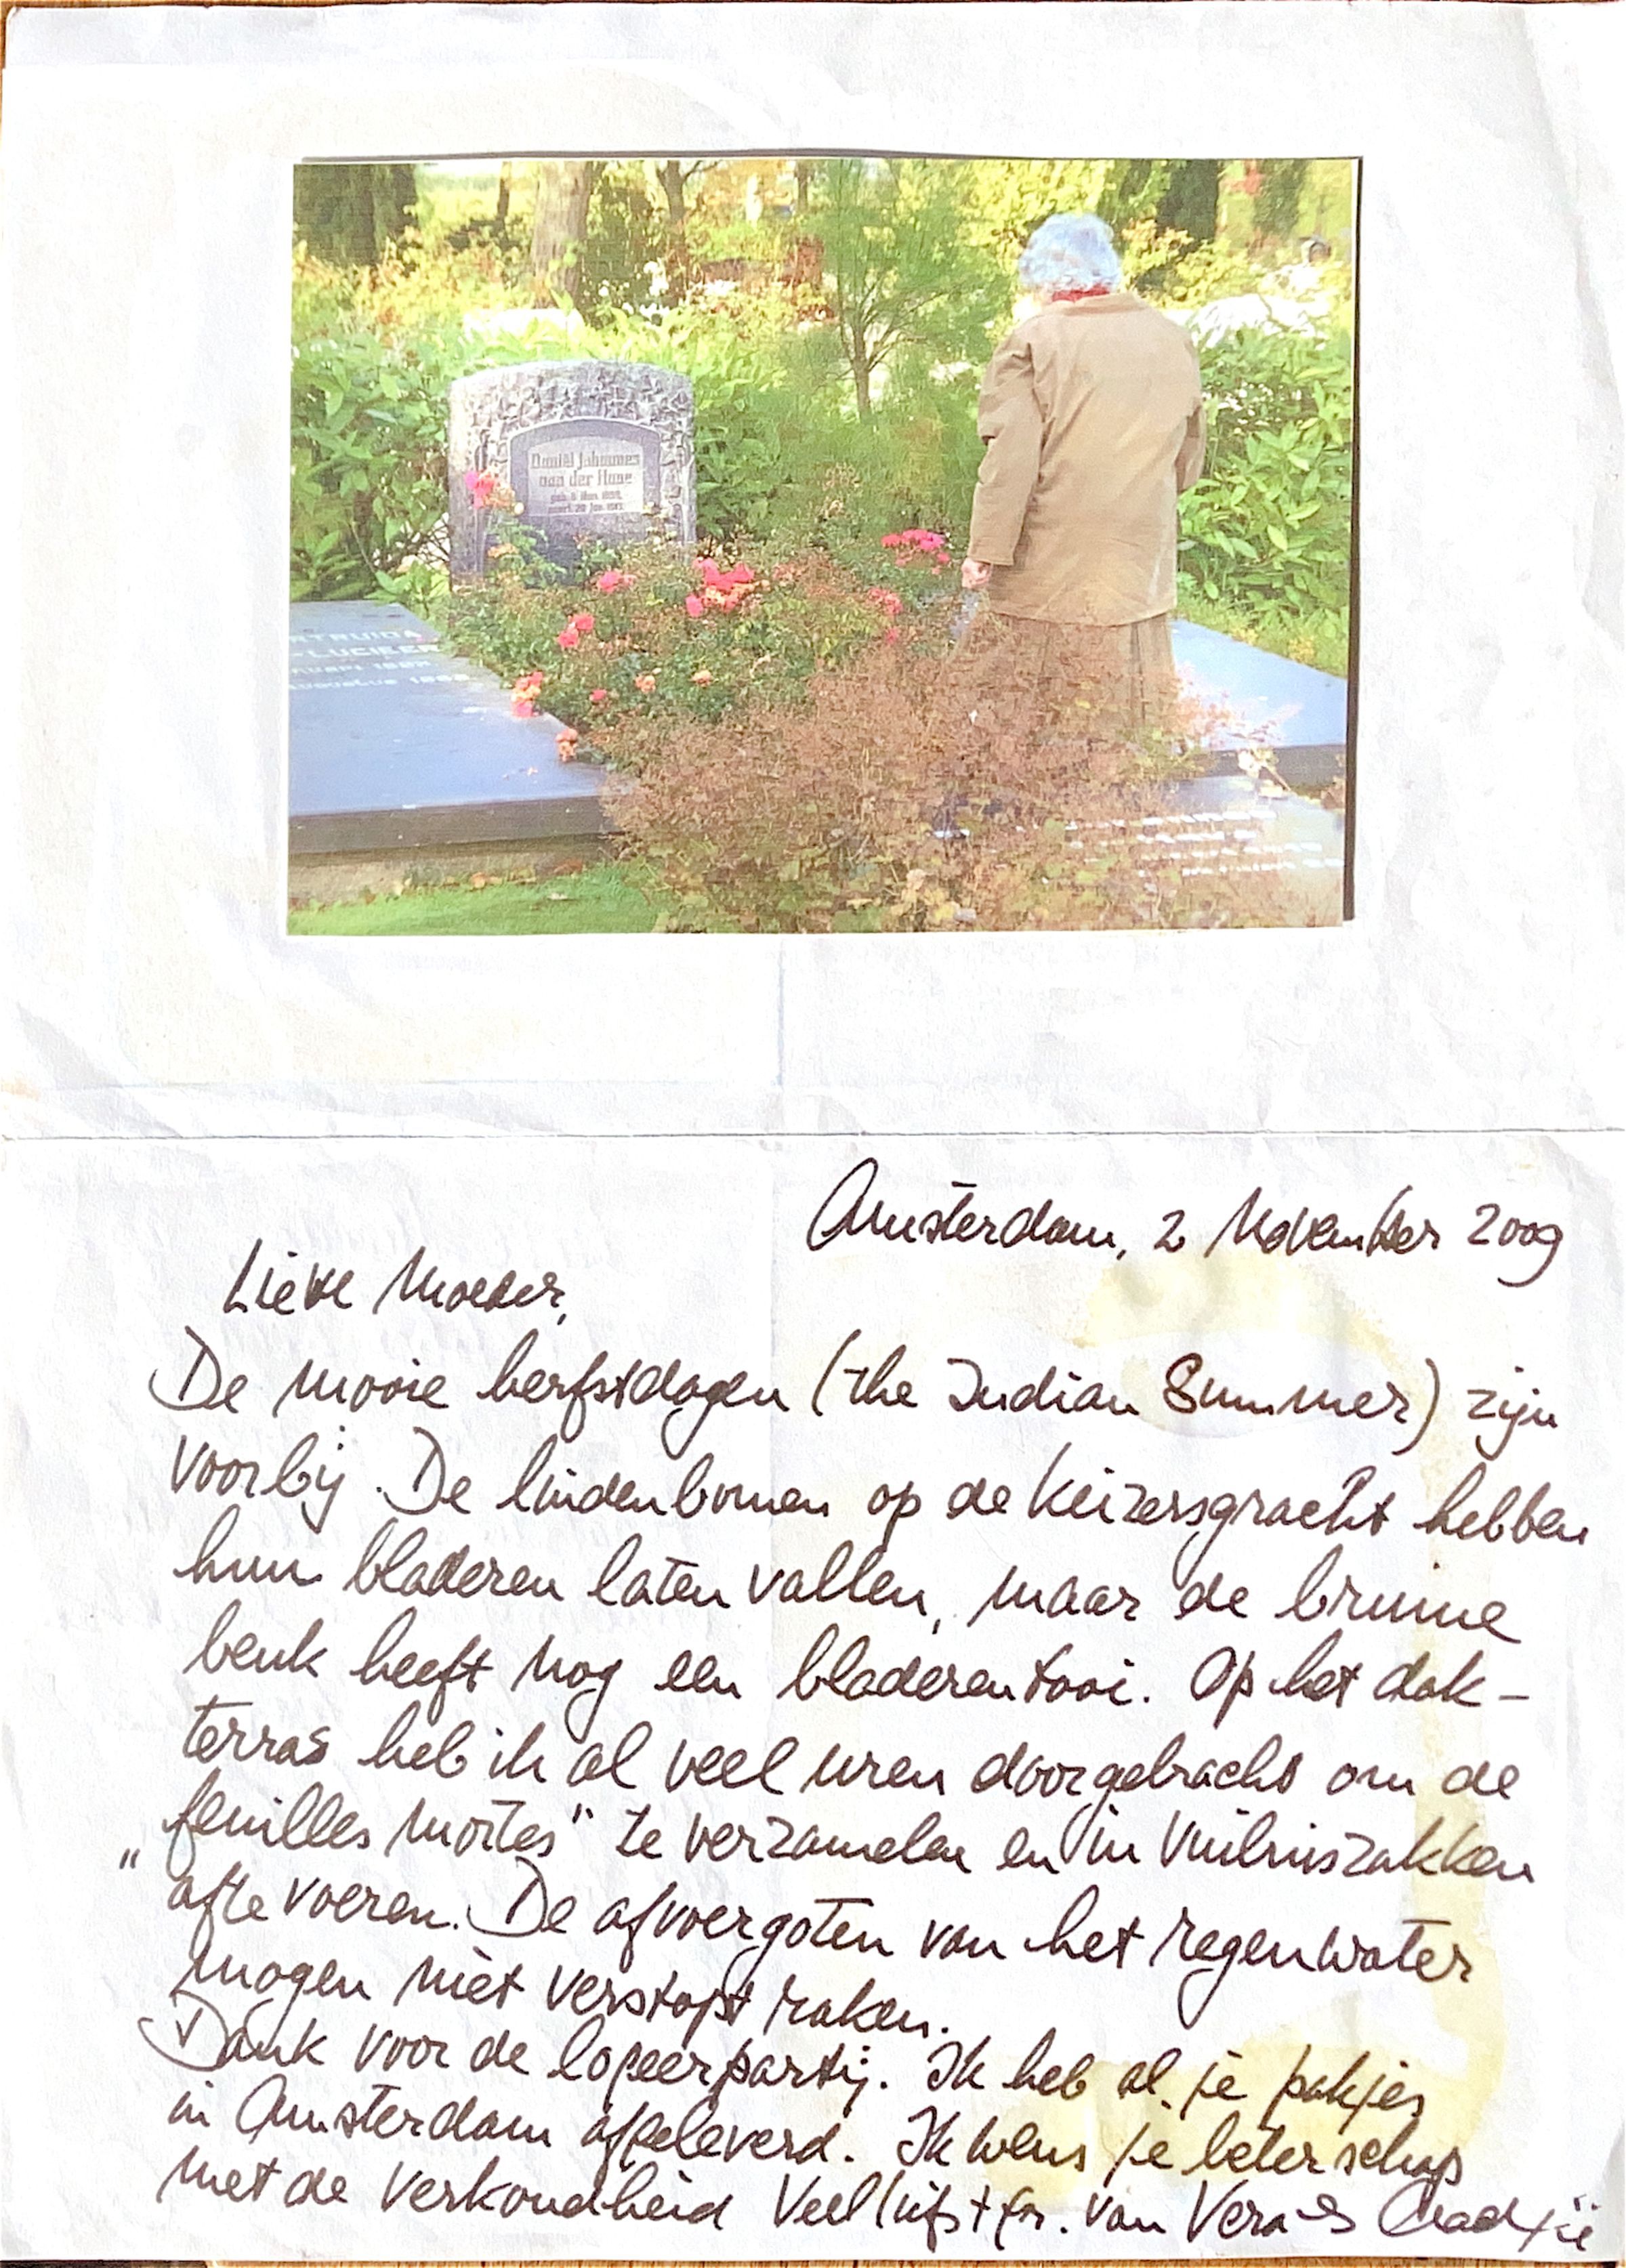 Daniël Johannes
van der
RTRUIDA
LUCIEER
Amsterdam, 2 November 2009
Lieve Moeder,
De mooie herfstdagen (the Indian Summer) zijn
voorbij. De lindenbomen op de Keizersgracht hebben
hun bladeren laten vallen, maar de bruine
beuk heeft nog een bladerentooi. Op het dak-
terras heb ik al veel uren doorgebracht om de
„feuilles mortes" te verzamelen en in vuilniszakken
af te voeren. De afvoergoten van het regenwater
mogen niet verstopt raken.
Dank voor de logeerpartij. Ik heb al je pakjes
in Amsterdam afgeleverd. Ik wens je beterschap
met de verkoudheid Veel liefs + gr. van Vera en